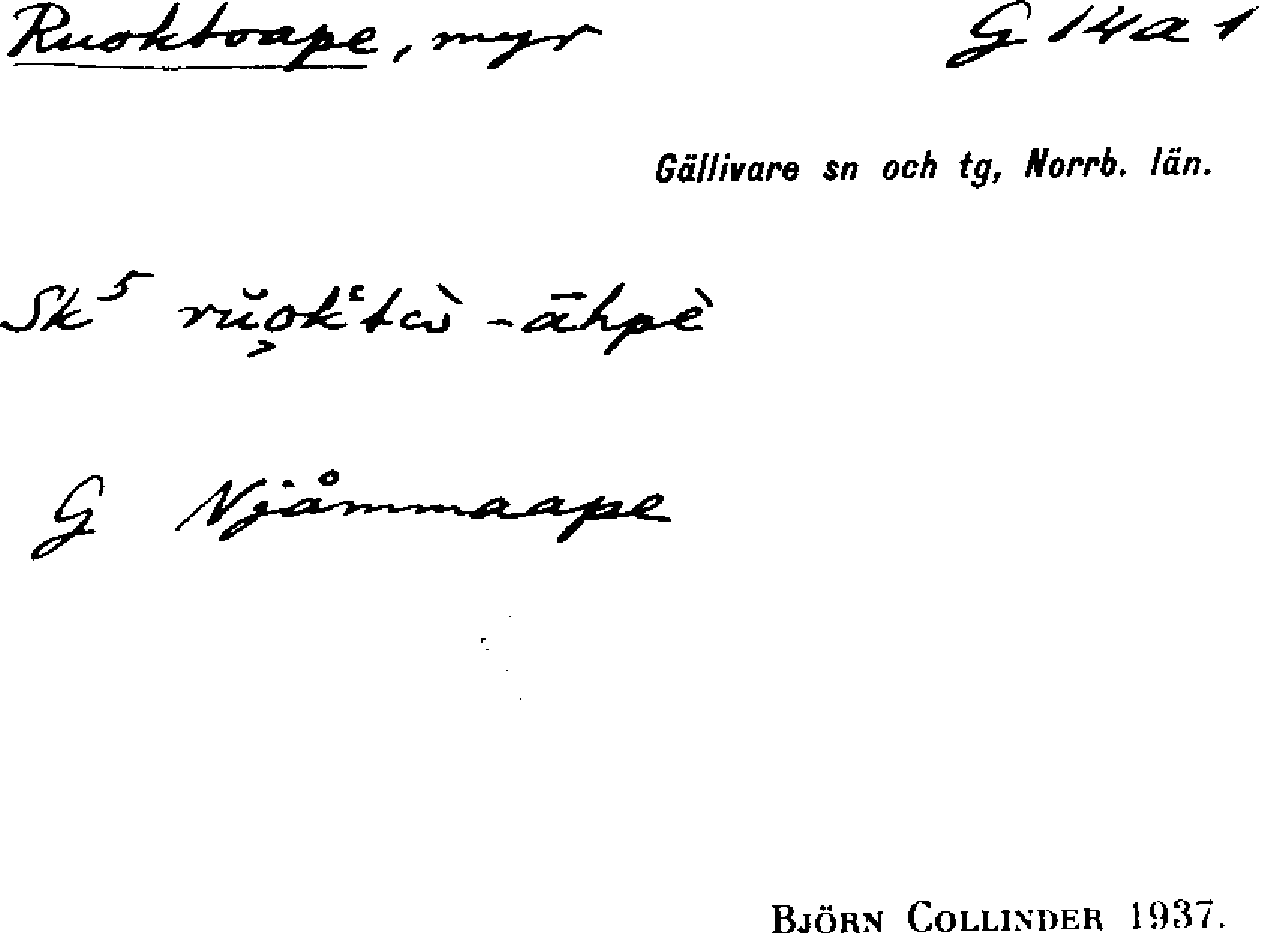 Ruoktoape, myr G 14a 1
Gällivare sn och tg, Norrb. län.
Sk⁵ rŭo̭kʿtὼ -āhpè
G Njåmmaape
BJÖRN COLLINDER 1937.